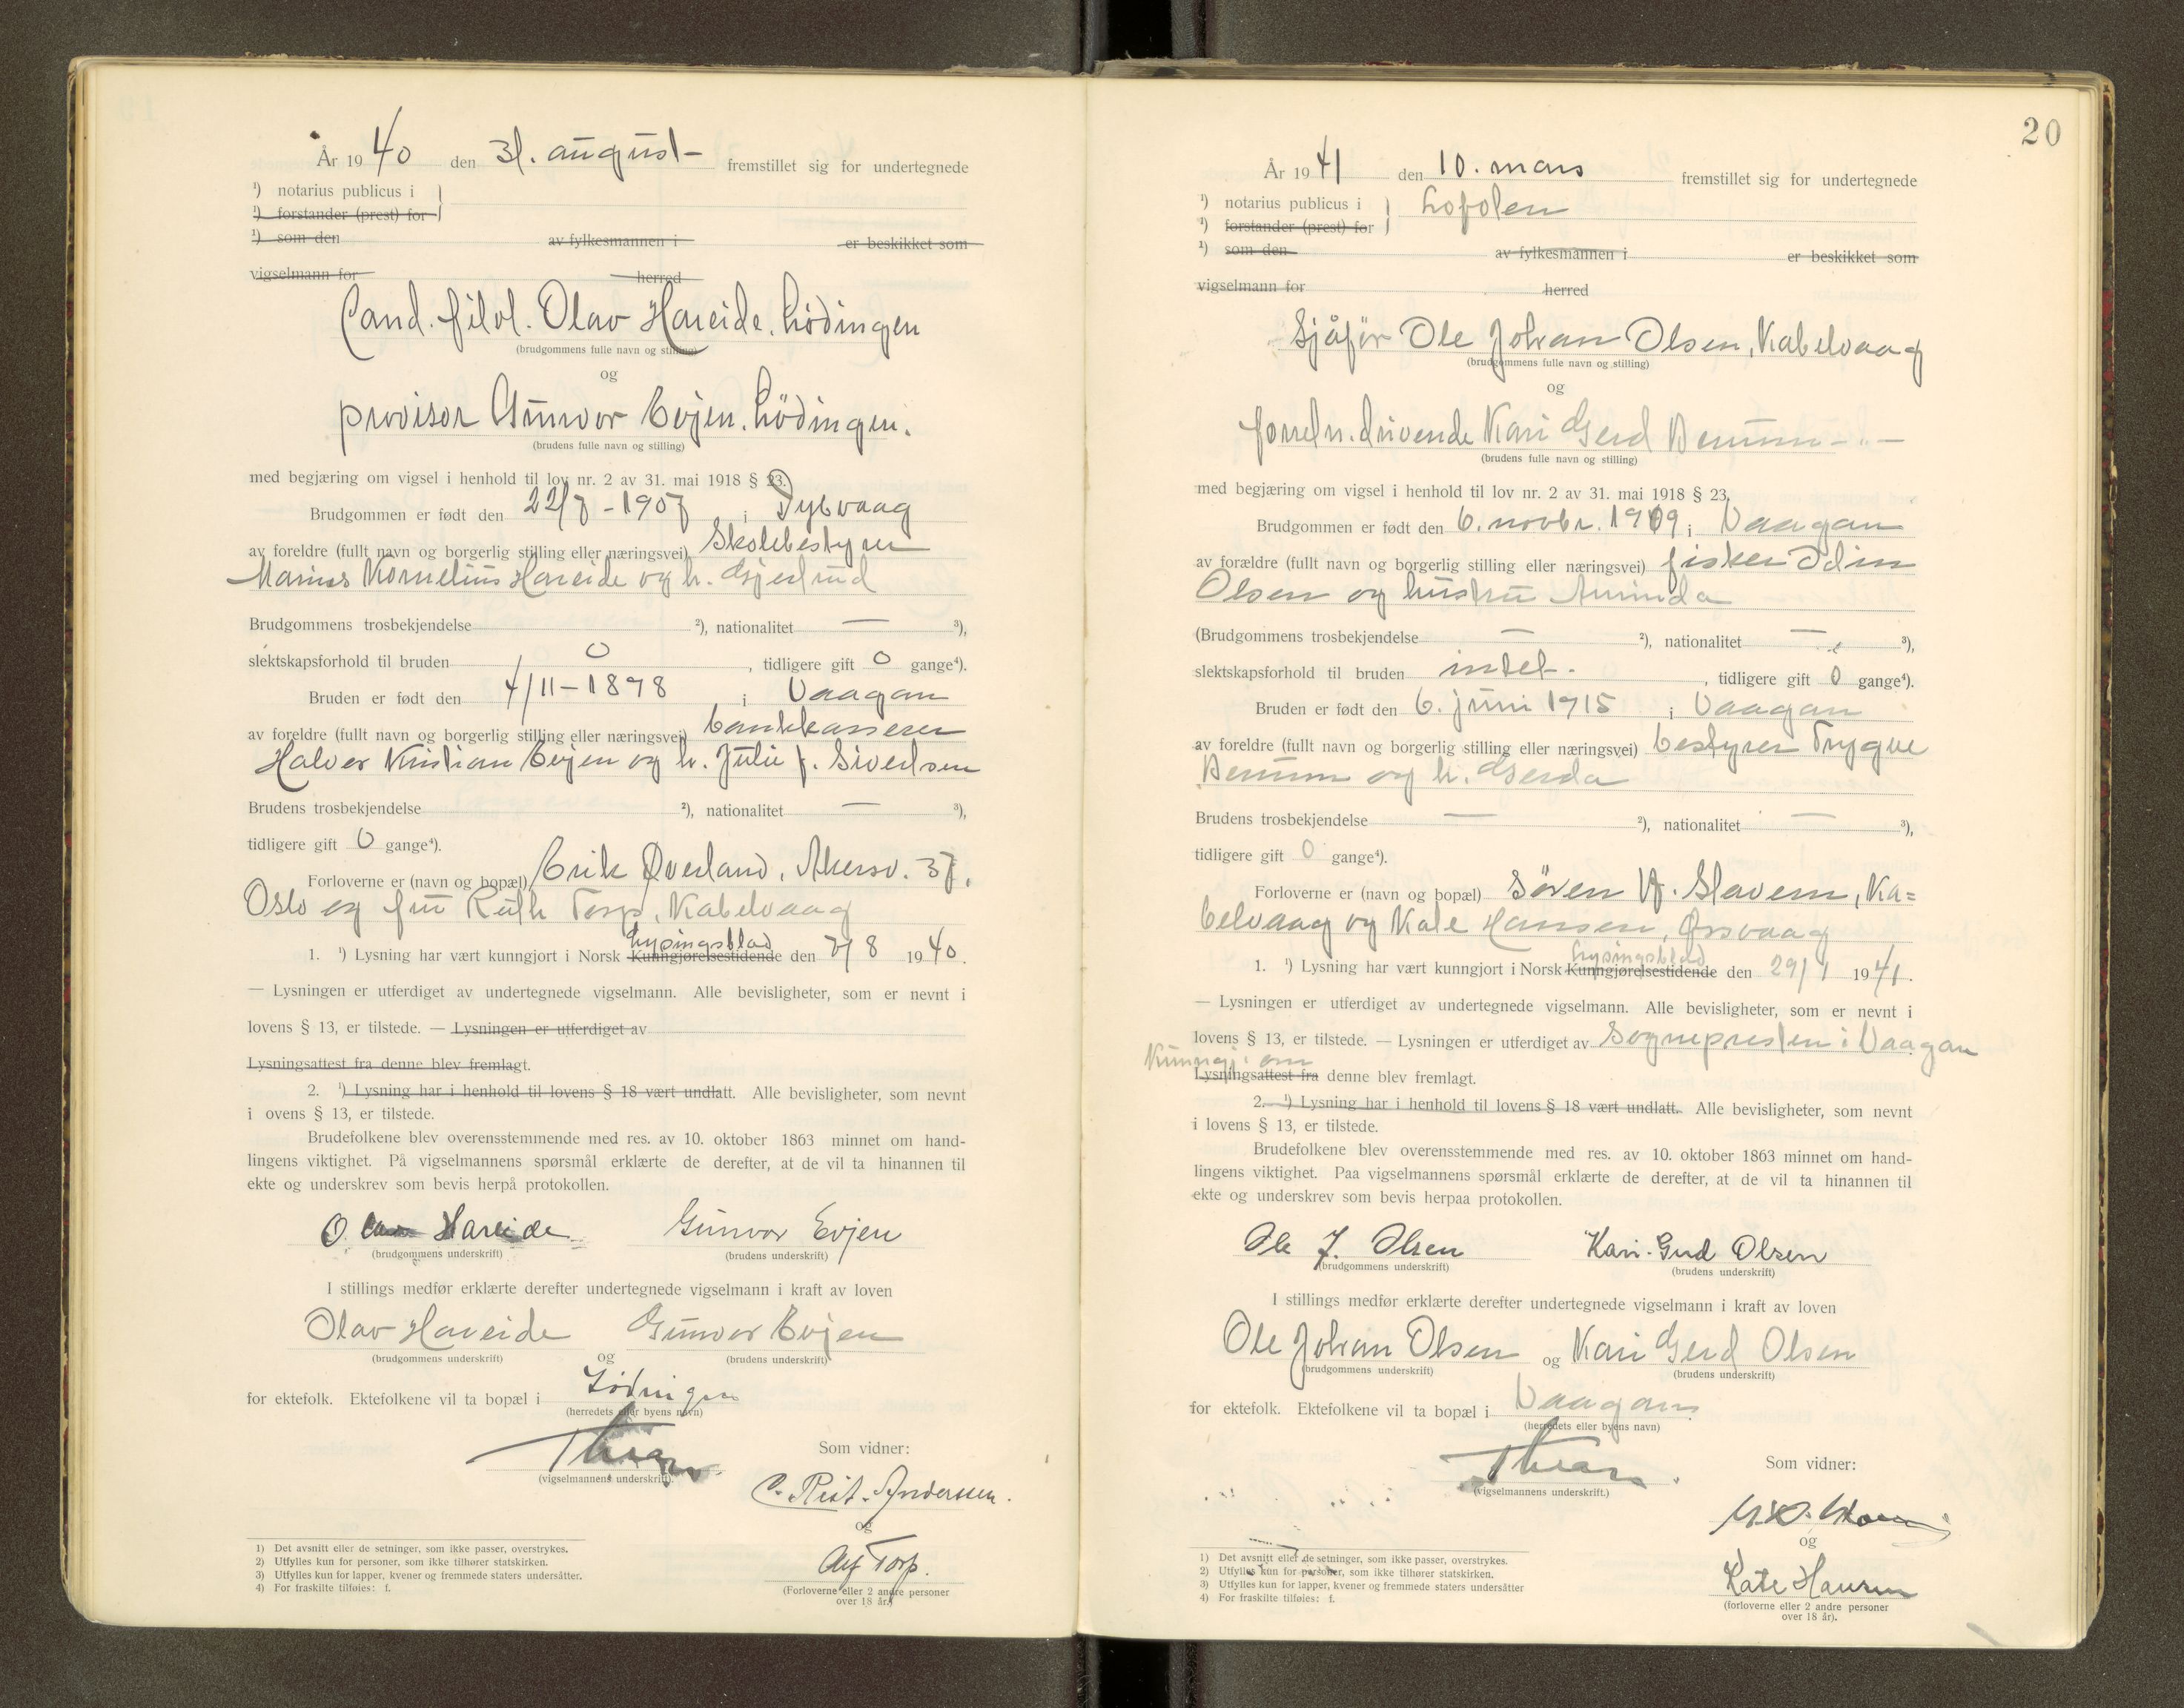 År 1940 den 31. august fremstillet sig for undertegnede
¹) notarius publicus i
¹) forstander (prest) for
¹) som den av fylkesmannen i er beskikket som
vigselmann for herred
Cand. filol. Olav Hareide, Lödingen
(brudgommens fulle navn og stilling)
og
provisor Gunvor Evjen, Lödingen.
(brudens fulle navn og stilling)
med begjæring om vigsel i henhold til lov nr. 2 av 31. mai 1918 § 23.
Brudgommen er født den 22/7 - 1907 i Dybvaag
av foreldre (fullt navn og borgerlig stilling eller næringsvei) Skolebestyrer
Marius Kornelius Hareide og h. Gjertrud
Brudgommens trosbekjendelse ²), nationalitet — ³),
slektskapsforhold til bruden 0, tidligere gift 0 gange⁴).
Bruden er født den 4/11 - 1898 i Vaagan
av foreldre (fullt navn og borgerlig stilling eller næringsvei) bankkasserer
Halvor Kristian Evjen og h. Julie f. Sivertsen
Brudens trosbekjendelse ²), nationalitet — ³),
tidligere gift 0 gange⁴).
Forloverne er (navn og bopæl) Erik Øverland, Akersv. 37,
Oslo og fru Ruth Torp, Kabelvaag
Lysingsblad
1. ¹) Lysning har vært kunngjort i Norsk Kunngjørelsestidende den 7/8 1940.
— Lysningen er utferdiget av undertegnede vigselmann. Alle bevisligheter, som er nevnt i
lovens § 13, er tilstede. — Lysningen er utferdiget av
Lysningsattest fra denne blev fremlagt.
2. ¹) Lysning har i henhold til lovens § 18 vært undlatt. Alle bevisligheter, som nevnt
i ovens § 13, er tilstede.
Brudefolkene blev overensstemmende med res. av 10. oktober 1863 minnet om hand-
lingens viktighet. På vigselmannens spørsmål erklærte de derefter, at de vil ta hinannen til
ekte og underskrev som bevis herpå protokollen.
Olav Hareide Gunvor Evjen
(brudgommens underskrift) (brudens underskrift)
I stillings medfør erklærte derefter undertegnede vigselmann i kraft av loven
Olav Hareide Gunvor Evjen
(brudgommens underskrift) og (brudens underskrift)
for ektefolk. Ektefolkene vil ta bopæl i Lödingen
(herredets eller byens navn)
(vigselmannens underskrift).
Som vidner:
C. Rist-Anderssen.
og
Alf Torp.
(Forloverne eller 2 andre personer
over 18 år.)
1) Det avsnitt eller de setninger, som ikke passer, overstrykes.
2) Utfylles kun for personer, som ikke tilhører statskirken.
3) Utfylles kun for lapper, kvener og fremmede staters undersåtter.
4) For fraskilte tilføies: f.
20
År 1941 den 10. mars fremstillet sig for undertegnede
¹) notarius publicus i Lofoten
¹) forstander (prest) for
¹) som den av fylkesmannen i er beskikket som
vigselmann for herred
Sjåfør Ole Johan Olsen, Kabelvaag
(brudgommens fulle navn og stilling)
og
forretn.drivende Kari Gerd Benum - " -
(brudens fulle navn og stilling)
med begjæring om vigsel i henhold til lov nr. 2 av 31. mai 1918 § 23.
Brudgommen er født den 6. novbr. 1909 i Vaagan
av forældre (fullt navn og borgerlig stilling eller næringsvei) fisker Odin
Olsen og hustru
(Brudgommens trosbekjendelse — ²), nationalitet — ³),
slektskapsforhold til bruden intet., tidligere gift 0 gange⁴).
Bruden er født den 6. juni 1915 i Vaagan
av foreldre (fullt navn og borgerlig stilling eller næringsvei) bestyrer Trygve
Benum og h. Gerda
Brudens trosbekjendelse — ²), nationalitet — ³),
tidligere gift 0 gange⁴).
Forloverne er (navn og bopæl) Sören Stavem, Ka=
belvaag og Kate Hansen, Ørsvaag
Lysingsblad
1. ¹) Lysning har vært kunngjort i Norsk Kunngjørelsestidende den 29/1 1941.
— Lysningen er utferdiget av undertegnede vigselmann. Alle bevisligheter, som er nevnt i
lovens § 13, er tilstede. — Lysningen er utferdiget av Sognepresten i Vaagan
Kunngj. om
Lysningsattest fra denne blev fremlagt.
2. ¹) Lysning har i henhold til lovens § 18 vært undlatt. Alle bevisligheter, som nevnt
i lovens § 13, er tilstede.
Brudefolkene blev overensstemmende med res. av 10. oktober 1863 minnet om hand-
lingens viktighet. Paa vigselmannens spørsmål erklærte de derefter, at de vil ta hinannen til
ekte og underskrev som bevis herpaa protokollen.
Ole J. Olsen Kari-Gerd Olsen
(brudgommens underskrift) (brudens underskrift)
I stillings medfør erklærte derefter undertegnede vigselmann i kraft av loven
Ole Johan Olsen og Kari Gerd Olsen
(brudgommens underskrift) (brudens underskrift)
for ektefolk. Ektefolkene vil ta bopæl i Vaagan
(herredets eller byens navn)
(vigselmannens underskrift.)
Som vidner:
og
Kate Hansen
(forloverne eller 2 andre personer
over 18 år).
1) Det avsnitt eller de setninger, som ikke passer, overstrykes.
2) Utfylles kun for personer, som ikke tilhører statskirken.
3) Utfylles kun for lapper, kvener og fremmede staters undersåtter
4) For fraskilte tilføies: f.